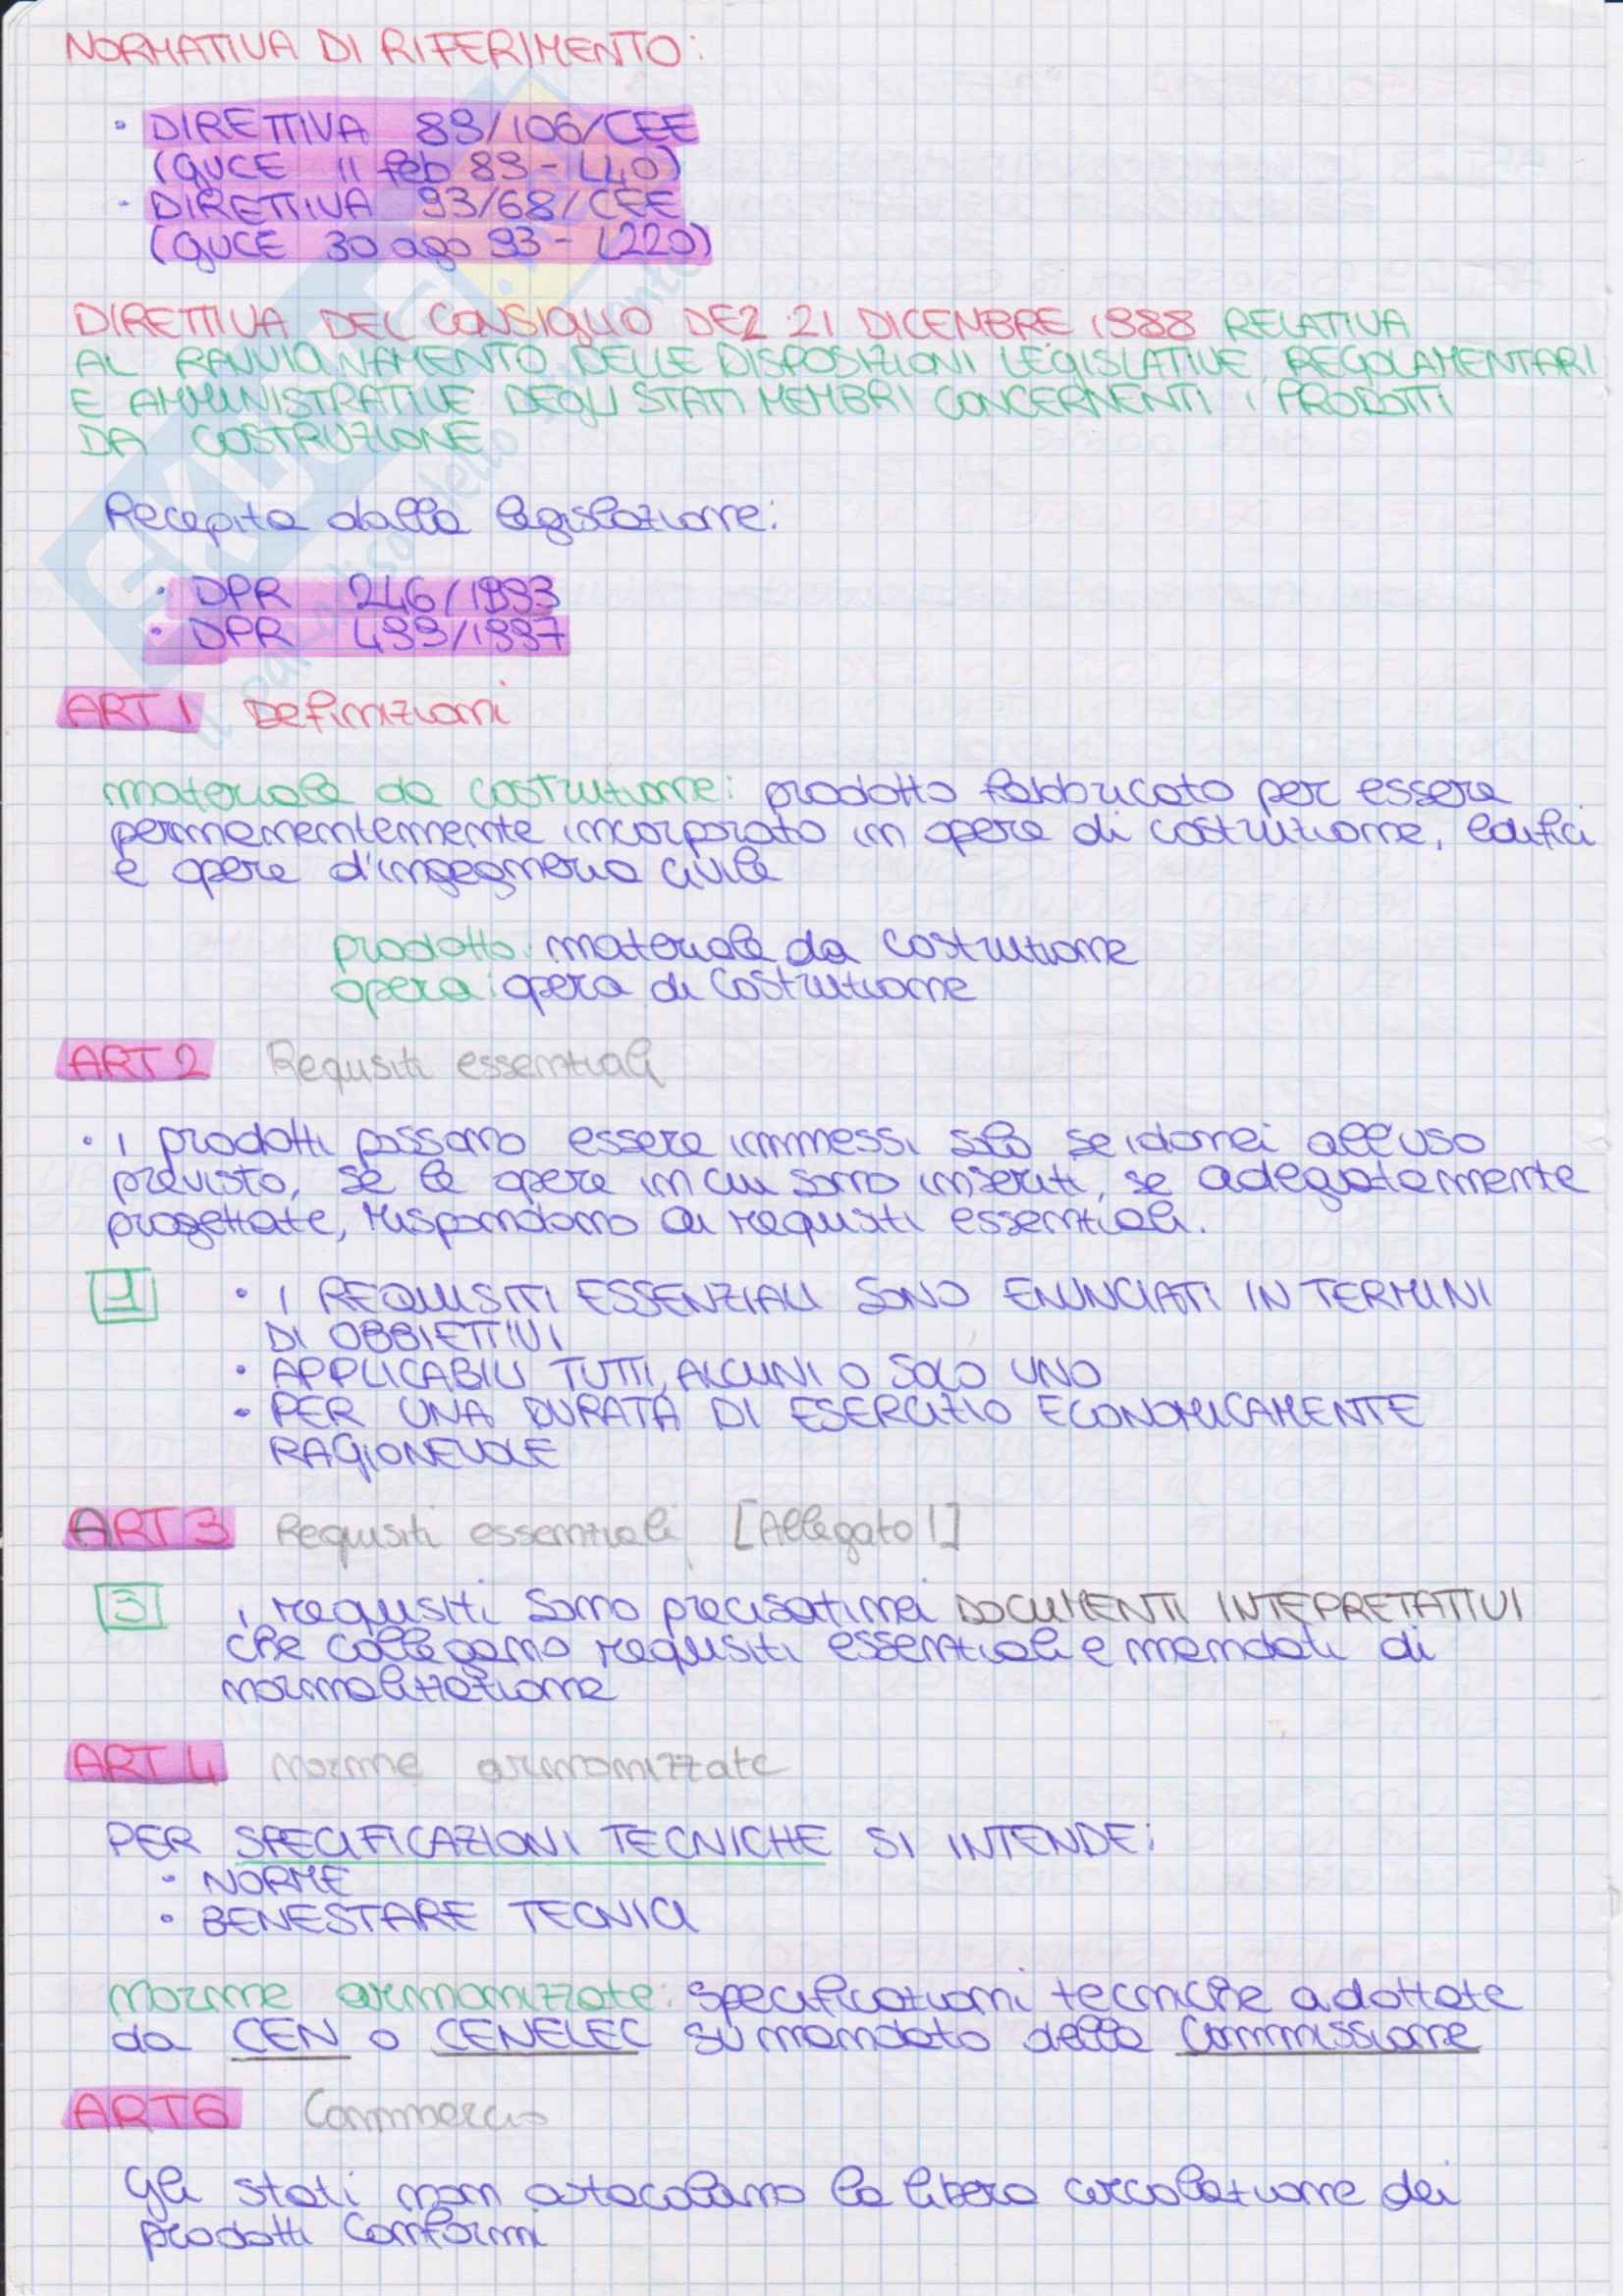 NORMATIVA DI RIFERIMENTO:
• DIRETTIVA 89/106/CEE
(GUCE 11 feb 89 - L40)
• DIRETTIVA 93/68/CEE
(GUCE 30 ago 93 - L220)
DIRETTIVA DEL CONSIGLIO DEL 21 DICEMBRE 1988 RELATIVA
AL RAVVICINAMENTO DELLE DISPOSIZIONI LEGISLATIVE, REGOLAMENTARI
E AMMINISTRATIVE DEGLI STATI MEMBRI CONCERNENTI I PRODOTTI
DA COSTRUZIONE
Recepita dalla legislazione:
• DPR 246/1993
• DPR 499/1997
ART 1 Definizioni
materiale da costruzione: prodotto fabbricato per essere
permanentemente incorporato in opere di costruzione, edifici
e opere d'ingegneria civile
prodotto: materiale da costruzione
opera: opera di costruzione
ART 2 Requisiti essenziali
• i prodotti possono essere immessi solo se idonei all'uso
previsto, se le opere in cui sono inseriti, se adeguatamente
progettate, rispondono ai requisiti essenziali.
1 • I REQUISITI ESSENZIALI SONO ENUNCIATI IN TERMINI
DI OBBIETTIVI
• APPLICABILI TUTTI, ALCUNI O SOLO UNO
• PER UNA DURATA DI ESERCIZIO ECONOMICAMENTE
RAGIONEVOLE
ART 3 Requisiti essenziali [Allegato 1]
3 i requisiti sono precisati nei DOCUMENTI INTEPRETATIVI
che collegano requisiti essenziali e mandati di
normalizzazione
ART 4 Norme armonizzate
PER SPECIFICAZIONI TECNICHE SI INTENDE:
• NORME
• BENESTARE TECNICI
Norme armonizzate: specificazioni tecniche adottate
da CEN o CENELEC su mandato della Commissione
ART 6 Commercio
Gli stati non ostacolano la libera circolazione dei
prodotti conformi